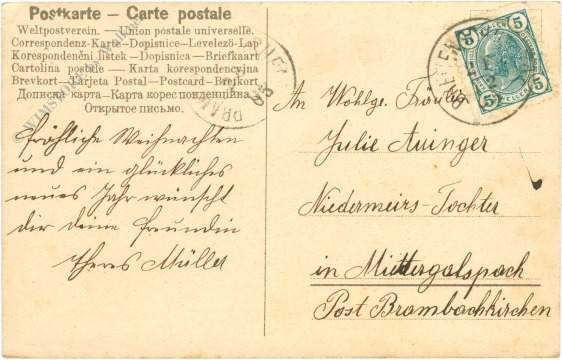 Postkarte — Carte postale
Weltpostverein. — Union postale universelle.
Correspondenz-Karte — Dopisnice — Levelező-Lap
Korespondenční listek — Dopisnica — Briefkaart
Cartolina postale — Karta korespondencyjna
Brevkort — Tarjeta Postal — Postcard — Brefkort
Дописна карта — Карта корес понденційна
Открытое письмо.
Fröhliche Weihnachten
und ein glückliches
neues Jahr wünscht
dir deine Freundin
Theres Müller
5 5
5 5
HELLER
An Wohlge.
Julie Auinger
Niedermeirs-Tochter
in Mittergalspach
Post Brambachkirchen